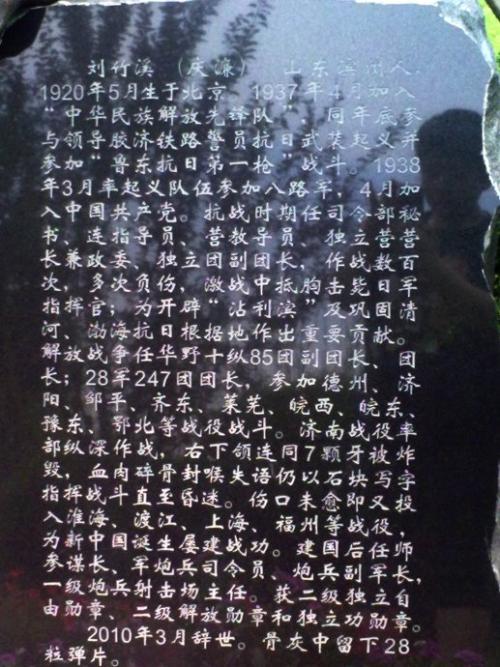 刘竹溪（庆濂） 山东滨州人，
1920年5月生于北京。1937年4月加入
“中华民族解放先锋队”，同年底参
与领导胶济铁路警员抗日武装起义并
参加“鲁东抗日第一枪”战斗。1938
年3月率起义队伍参加八路军，4月加
入中国共产党。抗战时期任司令部秘
书、连指导员、营教导员、独立营营
长兼政委、独立团副团长，作战数百
次，多次负伤，激战中抵胸击毙日军
指挥官；为开辟“沾利滨”及巩固清
河、渤海抗日根据地作出重要贡献。
解放战争任华野十纵85团副团长、团
长；28军247团团长，参加德州、济
阳、邹平、齐东、莱芜、皖西、皖东、
豫东、鄂北等战役战斗。济南战役率
部纵深作战，右下颌连同7颗牙被炸
毁，血肉碎骨封喉失语仍以石块写字
指挥战斗直至昏迷。伤口未愈即又投
入淮海、渡江、上海、福州等战役，
为新中国诞生屡建战功。建国后任师
参谋长、军炮兵司令员、炮兵副军长，
一级炮兵射击场主任。获二级独立自
由勋章、二级解放勋章和独立功勋章。
2010年3月辞世。骨灰中留下28
粒弹片。